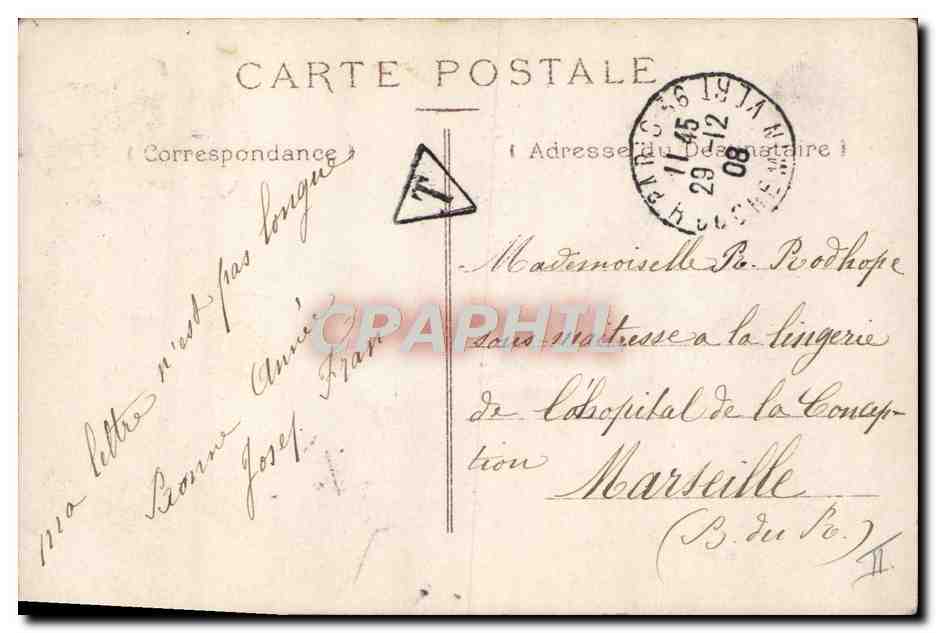 CARTE POSTALE
( Correspondance )
( Adresse du Destinataire )
T
PARIS 36
11 45
29 -12
08
Mademoiselle R. Rodhope
sous-maitresse a la lingerie
de l'ôhopital de la Concep-
tion
Marseille
(B. du R.)
II
ma lettre n'est pas longue
Bonne Année
Josef Fran
CPAPHIL